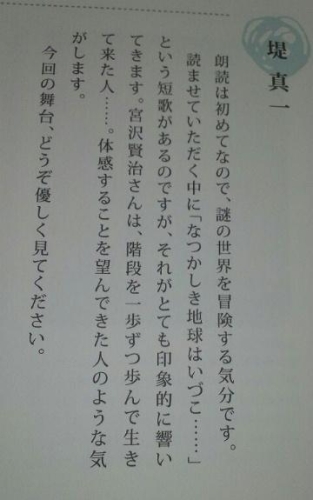 堤 真一
朗読は初めてなので、謎の世界を冒険する気分です。
読ませていただく中に「なつかしき地球はいづこ……」
という短歌があるのですが、それがとても印象的に響い
てきます。宮沢賢治さんは、階段を一歩ずつ歩んで生き
て来た人……。体感することを望んできた人のような気
がします。
今回の舞台、どうぞ優しく見てください。